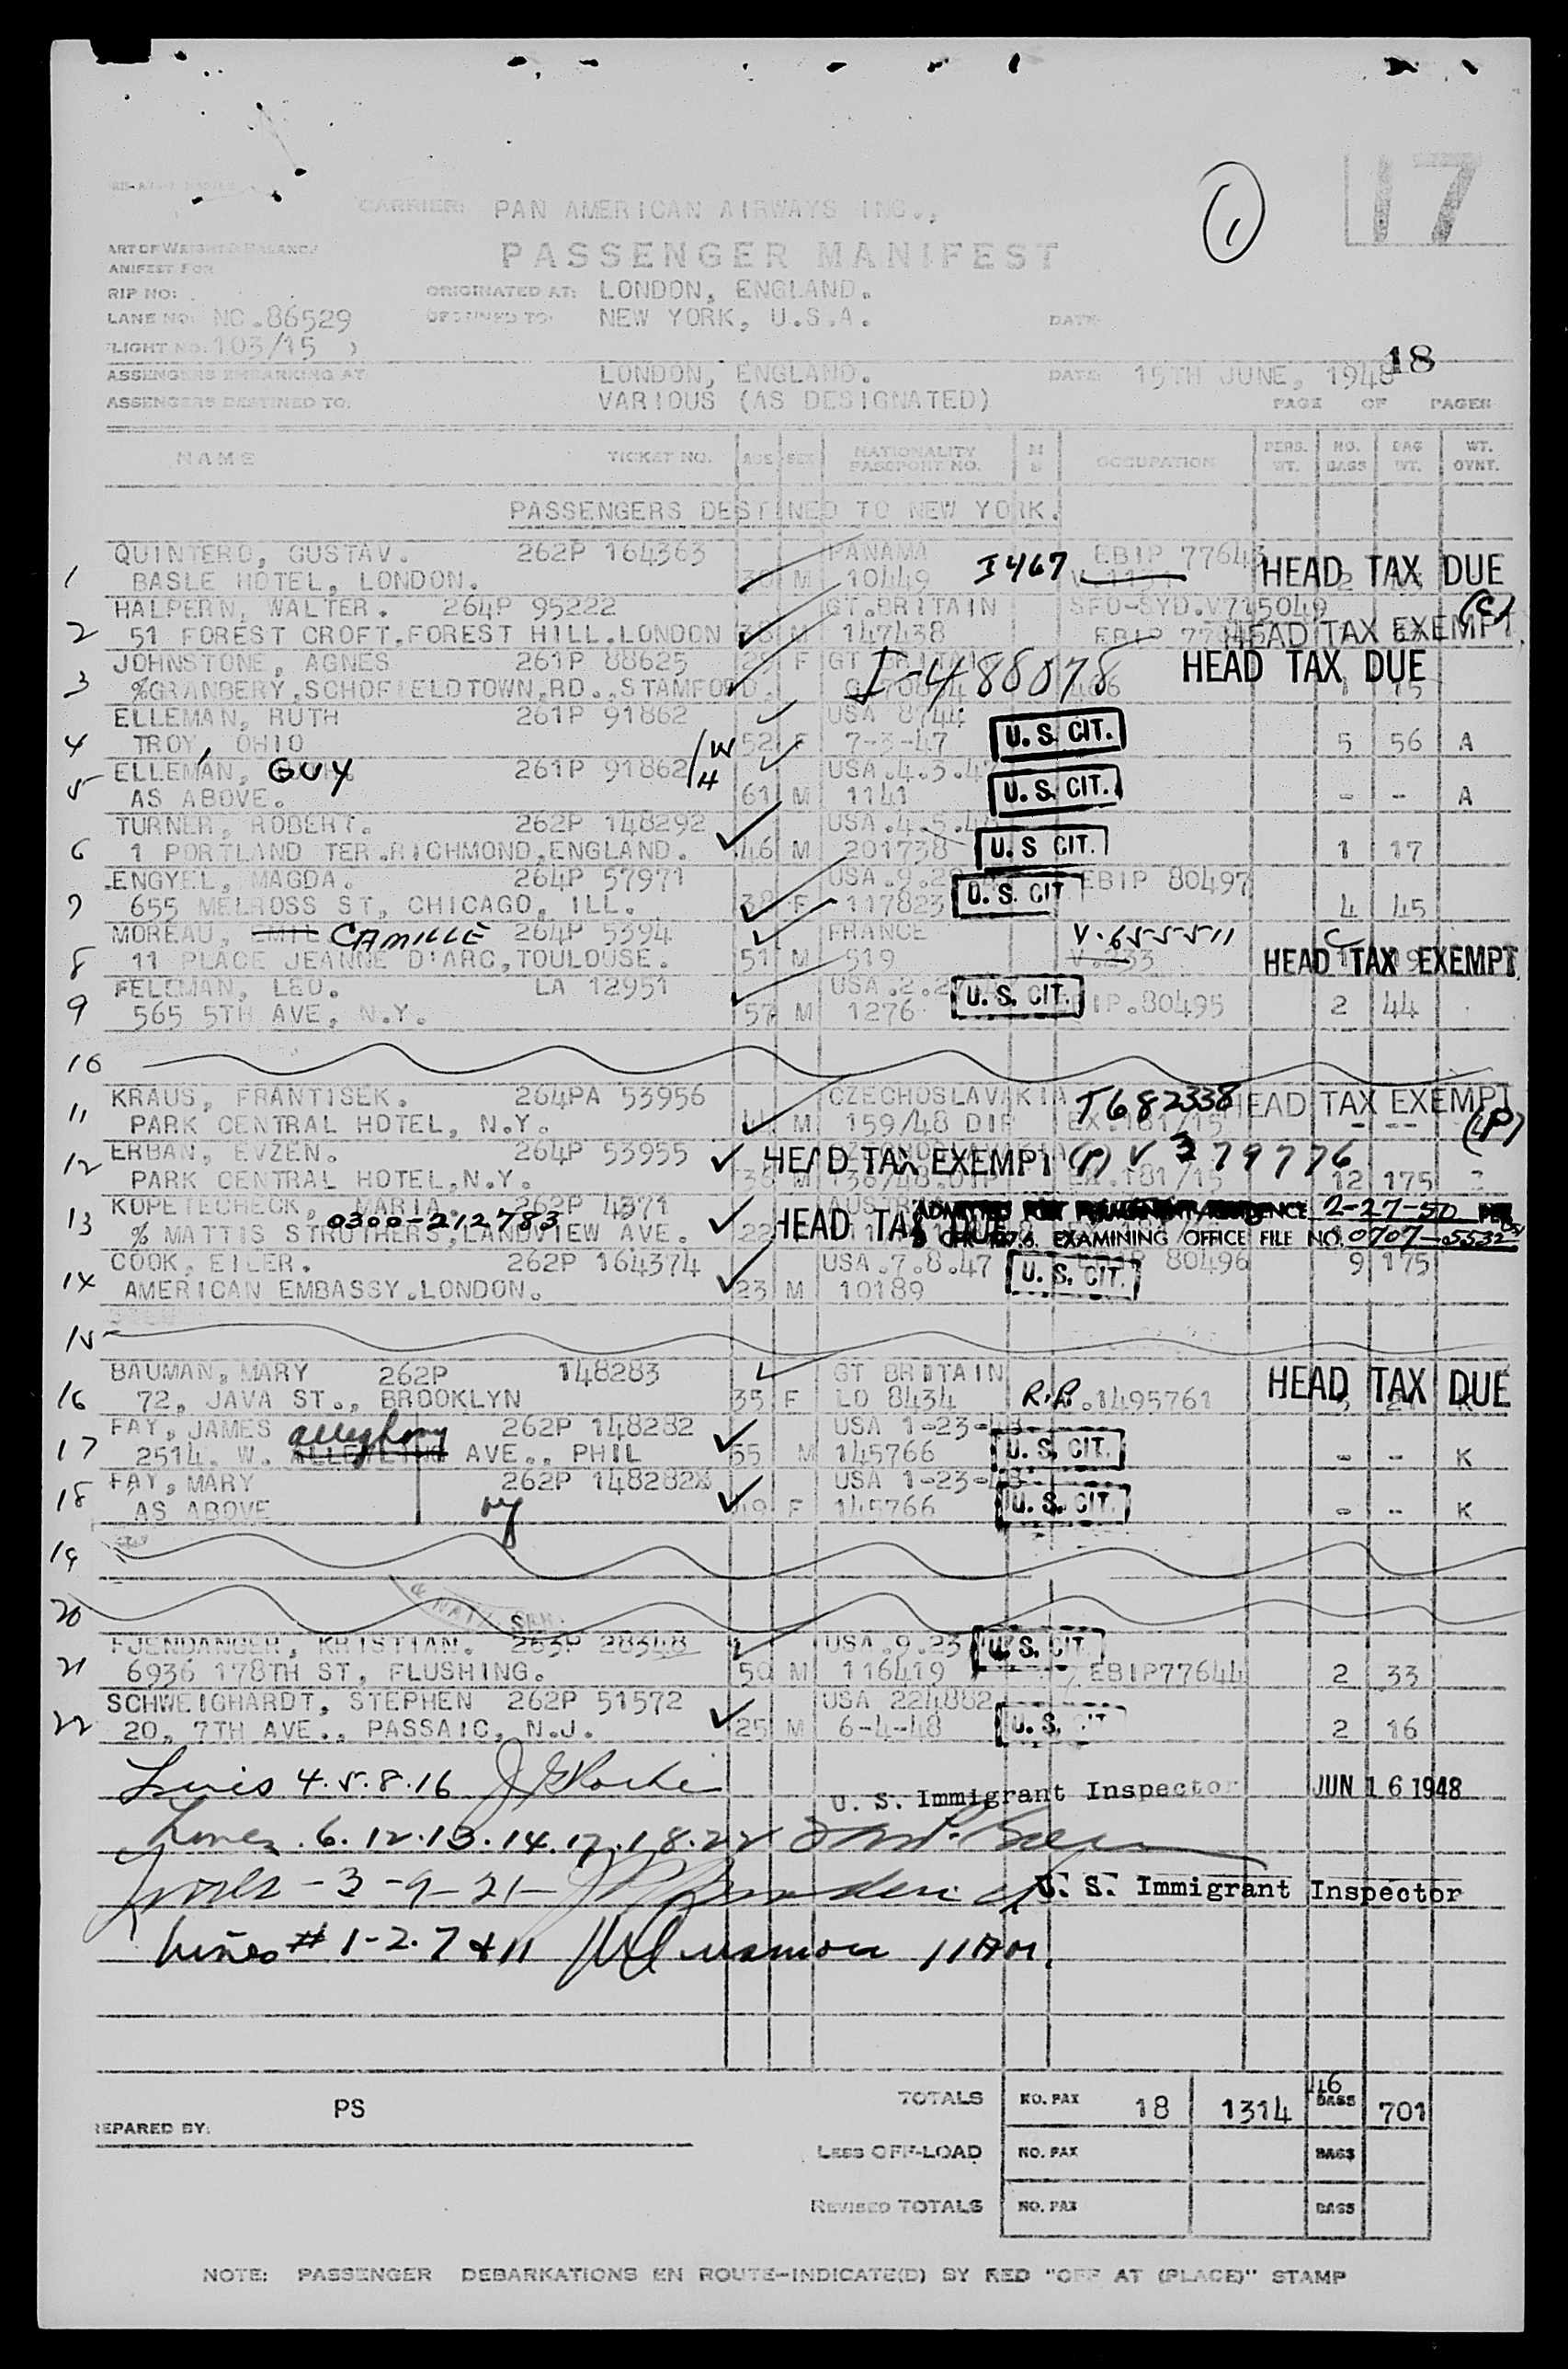 17
1
CARRIER: PAN AMERICAN AIRWAYS INC.,
ART OF WEIGHT & BALANCE
PASSENGER MANIFEST
ANIFEST FOR
RIP NO:
ORIGINATED AT: LONDON, ENGLAND.
LANE NO: NC.86529
NEW YORK, U.S.A.
DATE
LIGHT NO. 103/15 )
18
ASSENGERS EMBARKING AT LONDON, ENGLAND. DATE: 15TH JUNE, 1948
ASSENGERS DESTINED TO. VARIOUS (AS DESIGNATED)
PAGE OF PAGES
NAME TICKET NO. AGE SEX NATIONALITY PASSPORT NO. OCCUPATION PERS. WT. NO. BAGS BAG WT. WT. OVNT.
PASSENGERS DESTINED TO NEW YORK.
QUINTERO, GUSTAV. 262P 164363 PANAMA EBIP 77643
1 BASLE HOTEL, LONDON. M 10449 I467 HEAD TAX DUE
HALPERN, WALTER. 264P 95222 GT.BRITAIN SFO-SYD.V715049 (C)
2 51 FOREST CROFT.FOREST HILL.LONDON 38 M 147438 HEAD TAX EXEMPT.
JOHNSTONE, AGNES 261P 88625 F GT BRITAIN
3 %GRANBERY,SCHOFIELDTOWN,RD.,STAMFORD. I-488078 HEAD TAX DUE
ELLEMAN, RUTH 261P 91862 USA 8744
4 TROY, OHIO /W 52 F 7-3-47 U. S. CIT. 5 56 A
ELLEMAN, GUY 261P 91862/H USA.4.3.47
5 AS ABOVE. 61 M 1141 U. S. CIT. - -- A
TURNER, ROBERT. 262P 148292 USA.4.5.
6 1 PORTLAND TER.RICHMOND,ENGLAND. 46 M 201738 U. S CIT. 1 17
ENGYEL, MAGDA. 264P 57971 USA.9. EBIP 80497
7 655 MELROSS ST, CHICAGO, ILL. 38 F 117823 U. S. CIT 4 45
MOREAU, EMIL CAMILLE 264P 5394 FRANCE V.655511
8 11 PLACE JEANNE D'ARC,TOULOUSE. 51 M 519 V.233 C HEAD TAX EXEMPT.
FELLMAN, LEO. LA 12951 USA.2.
9 565 5TH AVE, N.Y. 57 M 1276 U. S. CIT. EBIP.80495 2 44
10
KRAUS, FRANTISEK. 264PA 53956 CZECHOSLAVAKIA T682338 HEAD TAX EXEMPT
11 PARK CENTRAL HOTEL, N.Y. M 159/48 DIP EX.181/15 - -- (P)
ERBAN, EVZEN. 264P 53955 HEAD TAX EXEMPT (P) V 379776
12 PARK CENTRAL HOTEL,N.Y. 36 M 136/48.DIP EX.181/15 12 175
KOPETECHECK, MARIA. 262P 4371 AUSTR ADMITTED FOR PERMANENT RESIDENCE 2-27-50 PER
0300-212783
13 % MATTIS STRUTHERS,LANDVIEW AVE. 22 HEAD TAX DUE EXAMINING OFFICE FILE NO. 0707-5532
COOK, EILER. 262P 164374 USA.7.8.47 EBIP 80496 9 175
14 AMERICAN EMBASSY.LONDON. 23 M 10189 U. S. CIT.
15
BAUMAN, MARY 262P 148283 GT BRITAIN
16 72, JAVA ST., BROOKLYN 35 F LO 8434 R.P.1495761 HEAD TAX DUE
FAY, JAMES allegheny 262P 148282 USA 1-23-48
17 2514. W. AVE., PHIL 55 M 145766 U. S. CIT. - -- K
FAY, MARY 262P 148282 USA 1-23-48
18 AS ABOVE 49 F 145766 U. S. CIT. - -- K
19
20
FJENDANGER, KRISTIAN. 263P 28348 USA.9.23 U. S. CIT.
21 6936 178TH ST, FLUSHING. 50 M 116419 EBIP77644 2 33
SCHWEIGHARDT, STEPHEN 262P 51572 USA 224882
22 20, 7TH AVE., PASSAIC, N.J. 25 M 6-4-48 U. S. CIT. 2 16
Lines 4.5.8.16 U. S. Immigrant Inspector JUN 16 1948
Lines.6.12.13.14.17.18.22
Lines -3-9-21- U. S. Immigrant Inspector
Lines # 1-2.7 & 11 11 AM.
TOTALS NO. PAX 18 1314 46 BAGS 701
PS
REPARED BY:
LESS OFF-LOAD NO. PAX BAGS
REVISED TOTALS NO. PAX BAGS
NOTE: PASSENGER DEBARKATIONS EN ROUTE-INDICATE(D) BY RED "OFF AT (PLACE)" STAMP